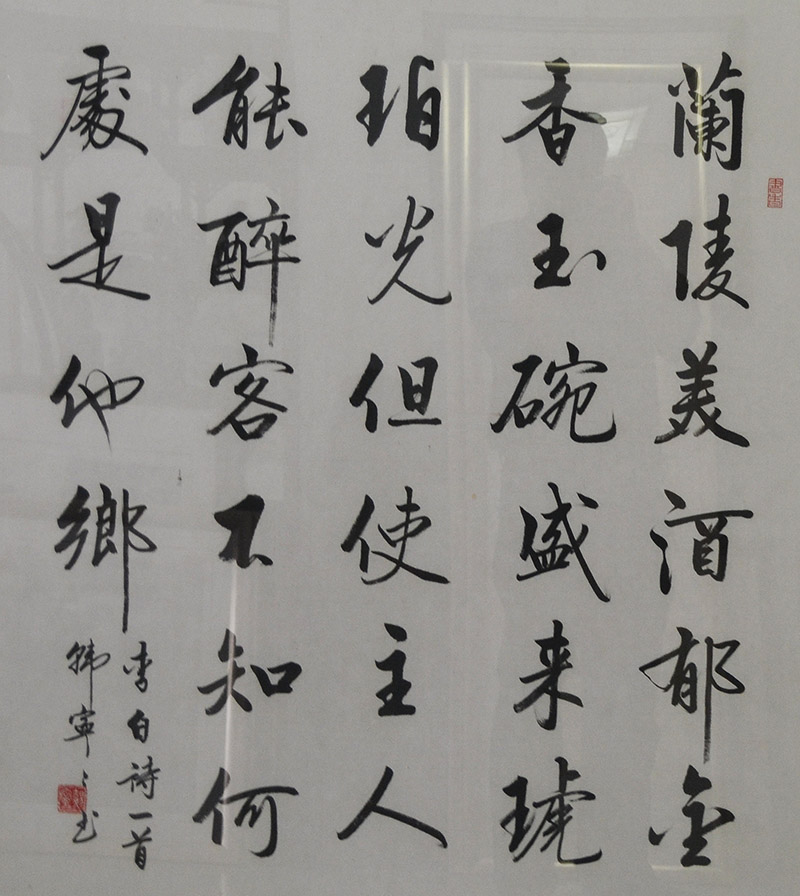 蘭陵美酒郁金
香玉碗盛来琥
珀光但使主人
能醉客不知何
處是他鄉
李白詩一首
韩寧〻书